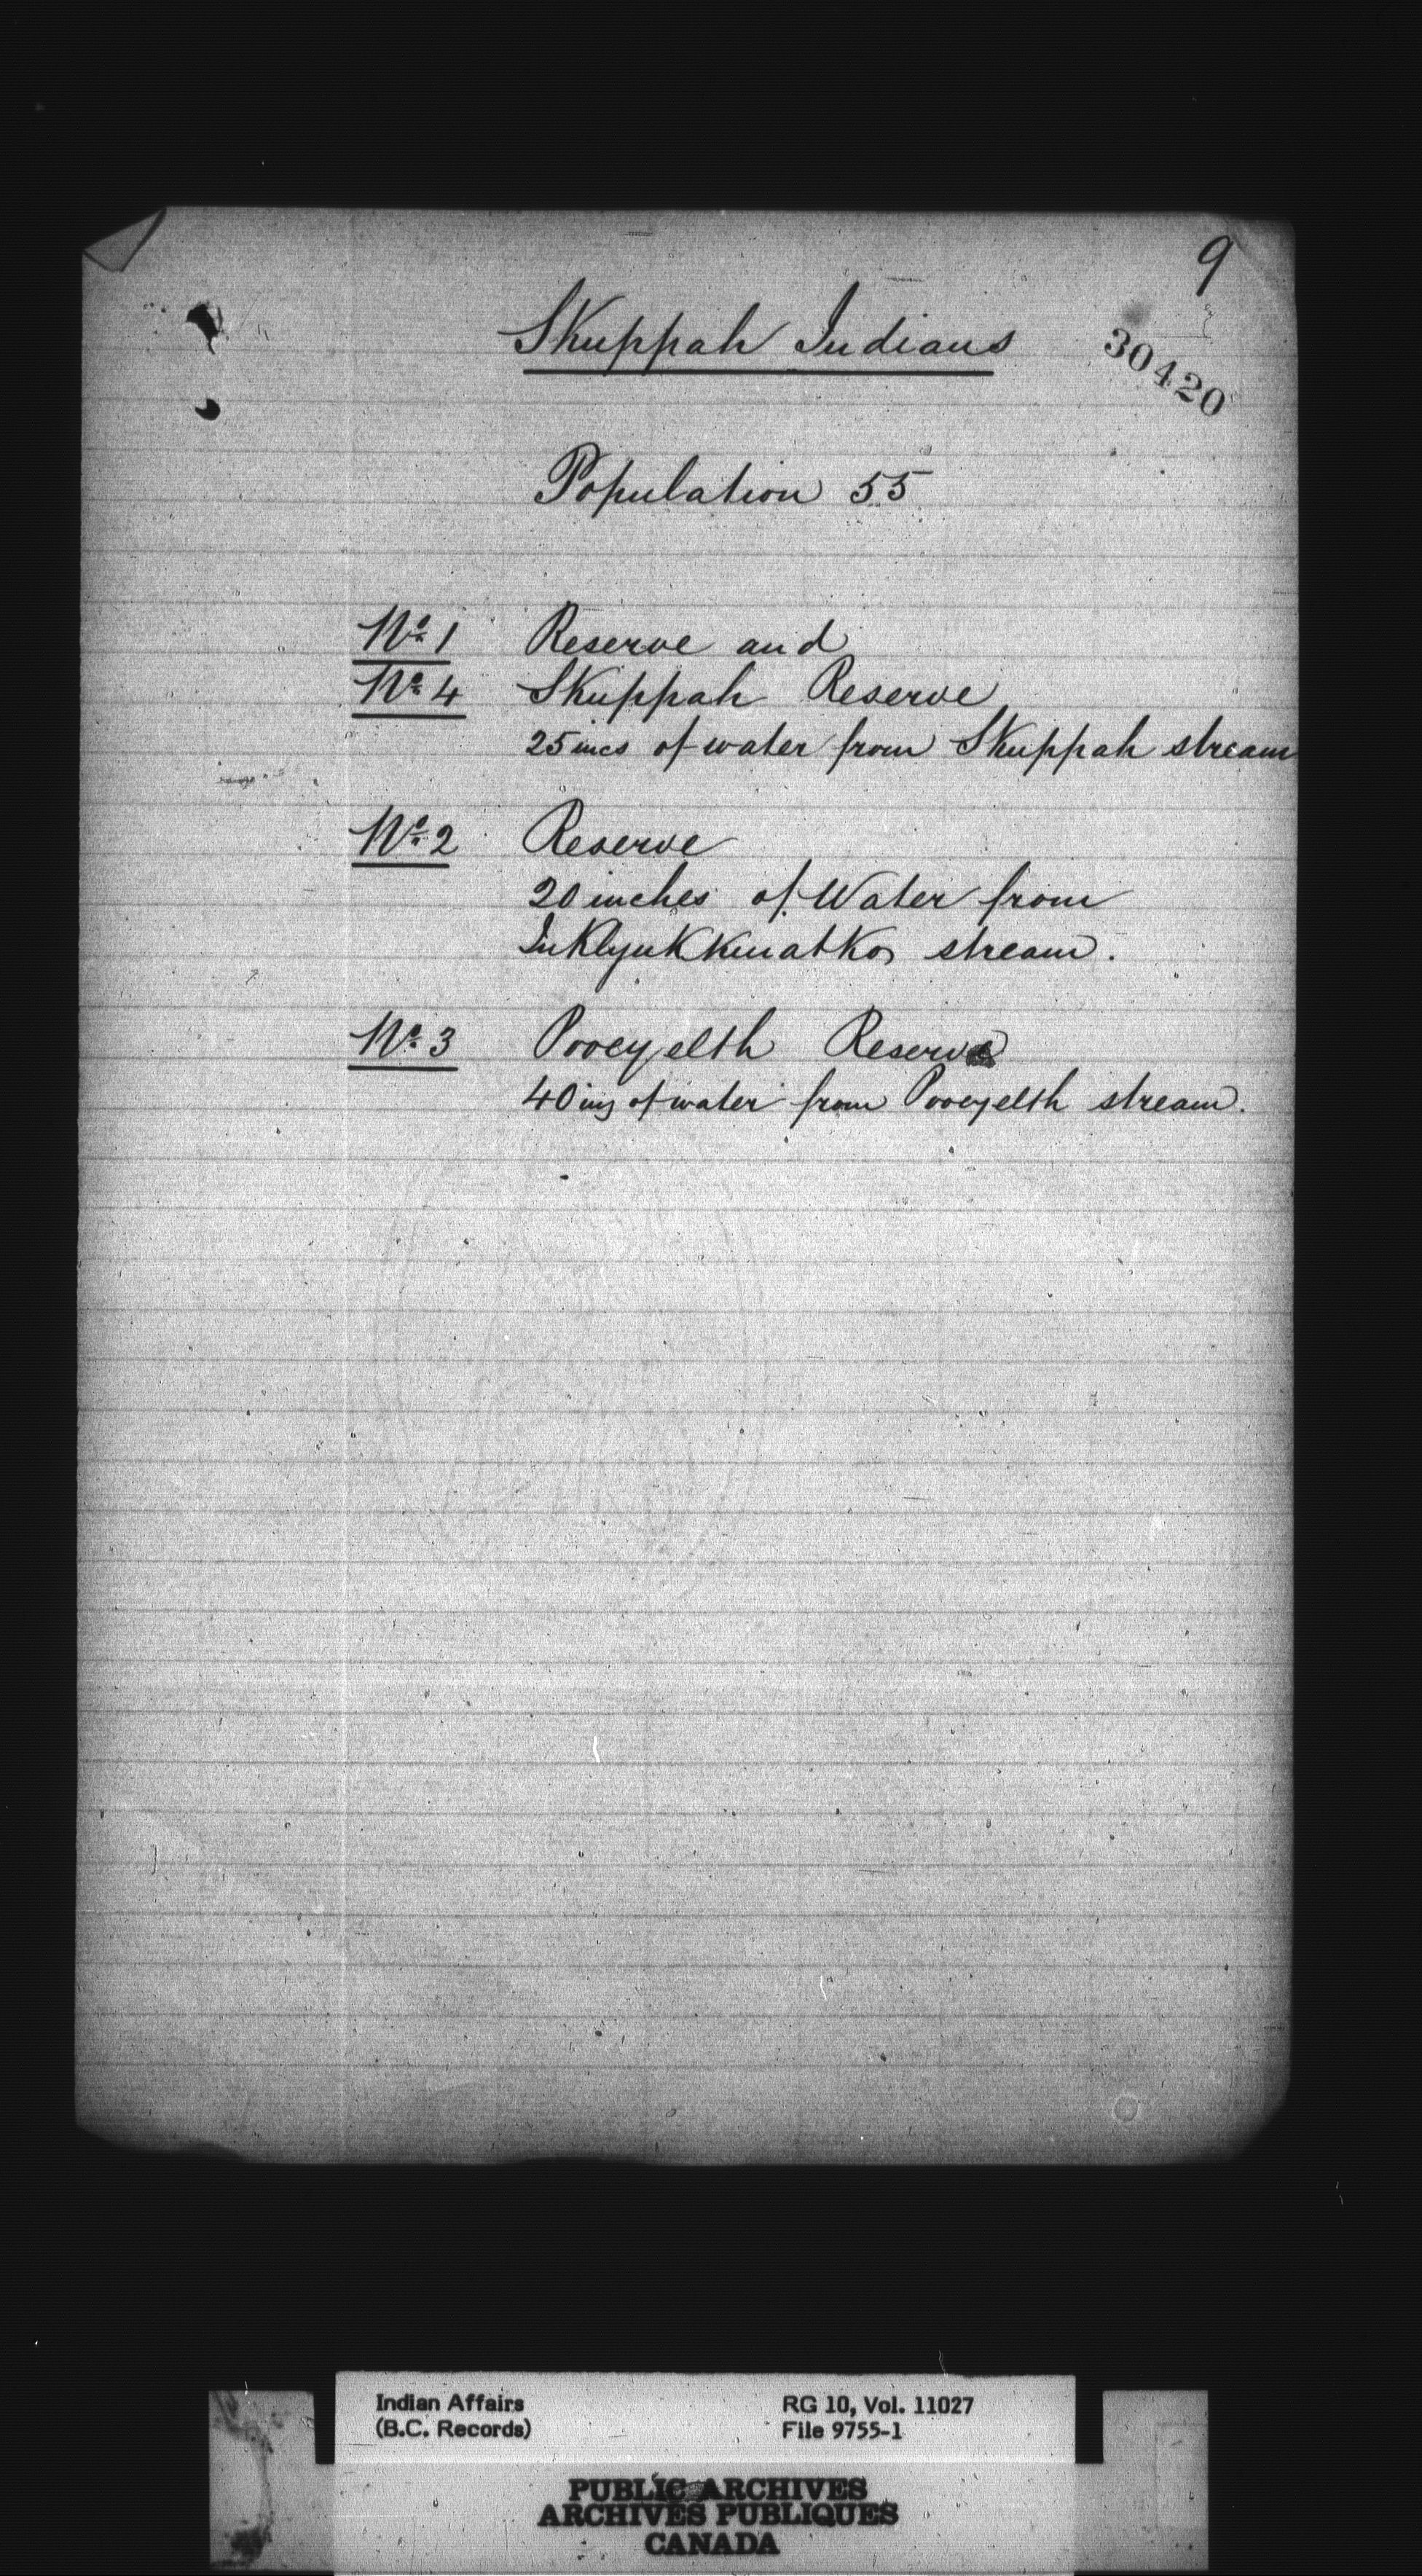 9
Skuppah Indians
30420
Population 55
No. 1 Reserve and
No. 4 Skuppah Reserve
25 incs of water from Skuppah stream
No. 2 Reserve
20 inches of Water from
stream.
No. 3 Pooeyelth Reserve
40 ins of water from Pooeyelth stream.
Indian Affairs RG 10, Vol. 11027
(B.C. Records) File 9755-1
PUBLIC ARCHIVES
ARCHIVES PUBLIQUES
CANADA